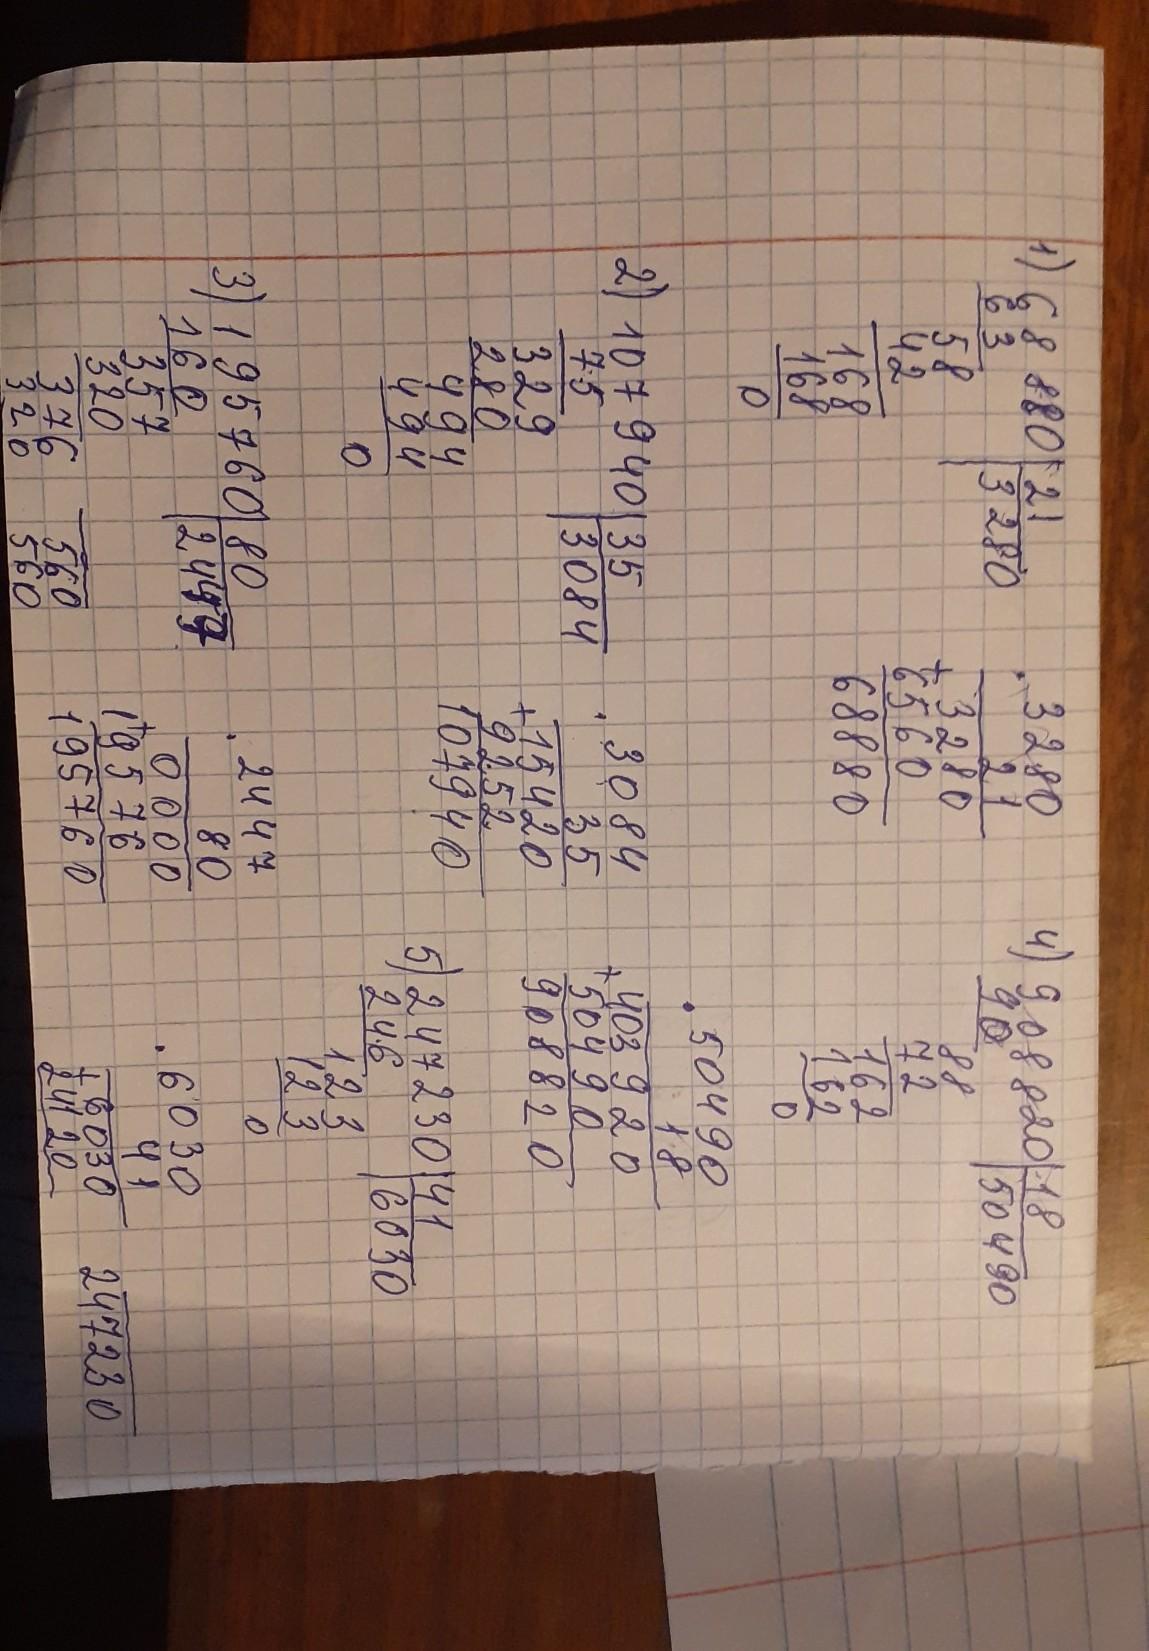 1) 68 880 | 21
63 | 3280
58
42
168
168
0
. 3280
21
+ 3280
6560
68880
2) 107 940 | 35
75 | 3084
329
280
494
494
0
. 3084
35
+ 15420
9252
107940
3) 195760 | 80
160 | 2447
357
320
376
320
560
560
. 2447
80
0000
+
19576
195760
4) 908 820 | 18
90 | 50490
88
72
162
162
0
. 50490
18
+ 403920
50490
908820
5) 247230 | 41
246 | 6030
123
123
0
. 6030
41
+ 6030
24120
247230